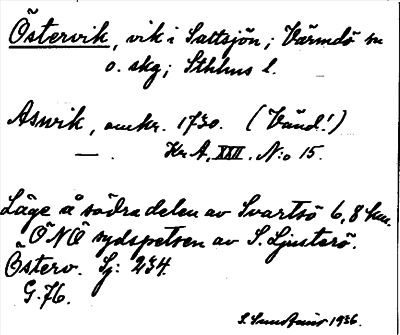 Östervik, vik i Saltsjön; Värmdö sn
o. skg; Sthlms l.
Aswik, omkr. 1730. (Vänd!)
— . Kr. A, XXII. N:o 15.
Läge å södra delen av Svartsö 6,8 km.
ÖNÖ sydspetsen av S. Ljusterö.
Österv. Sj: 234.
G. 76.
S. 1936.